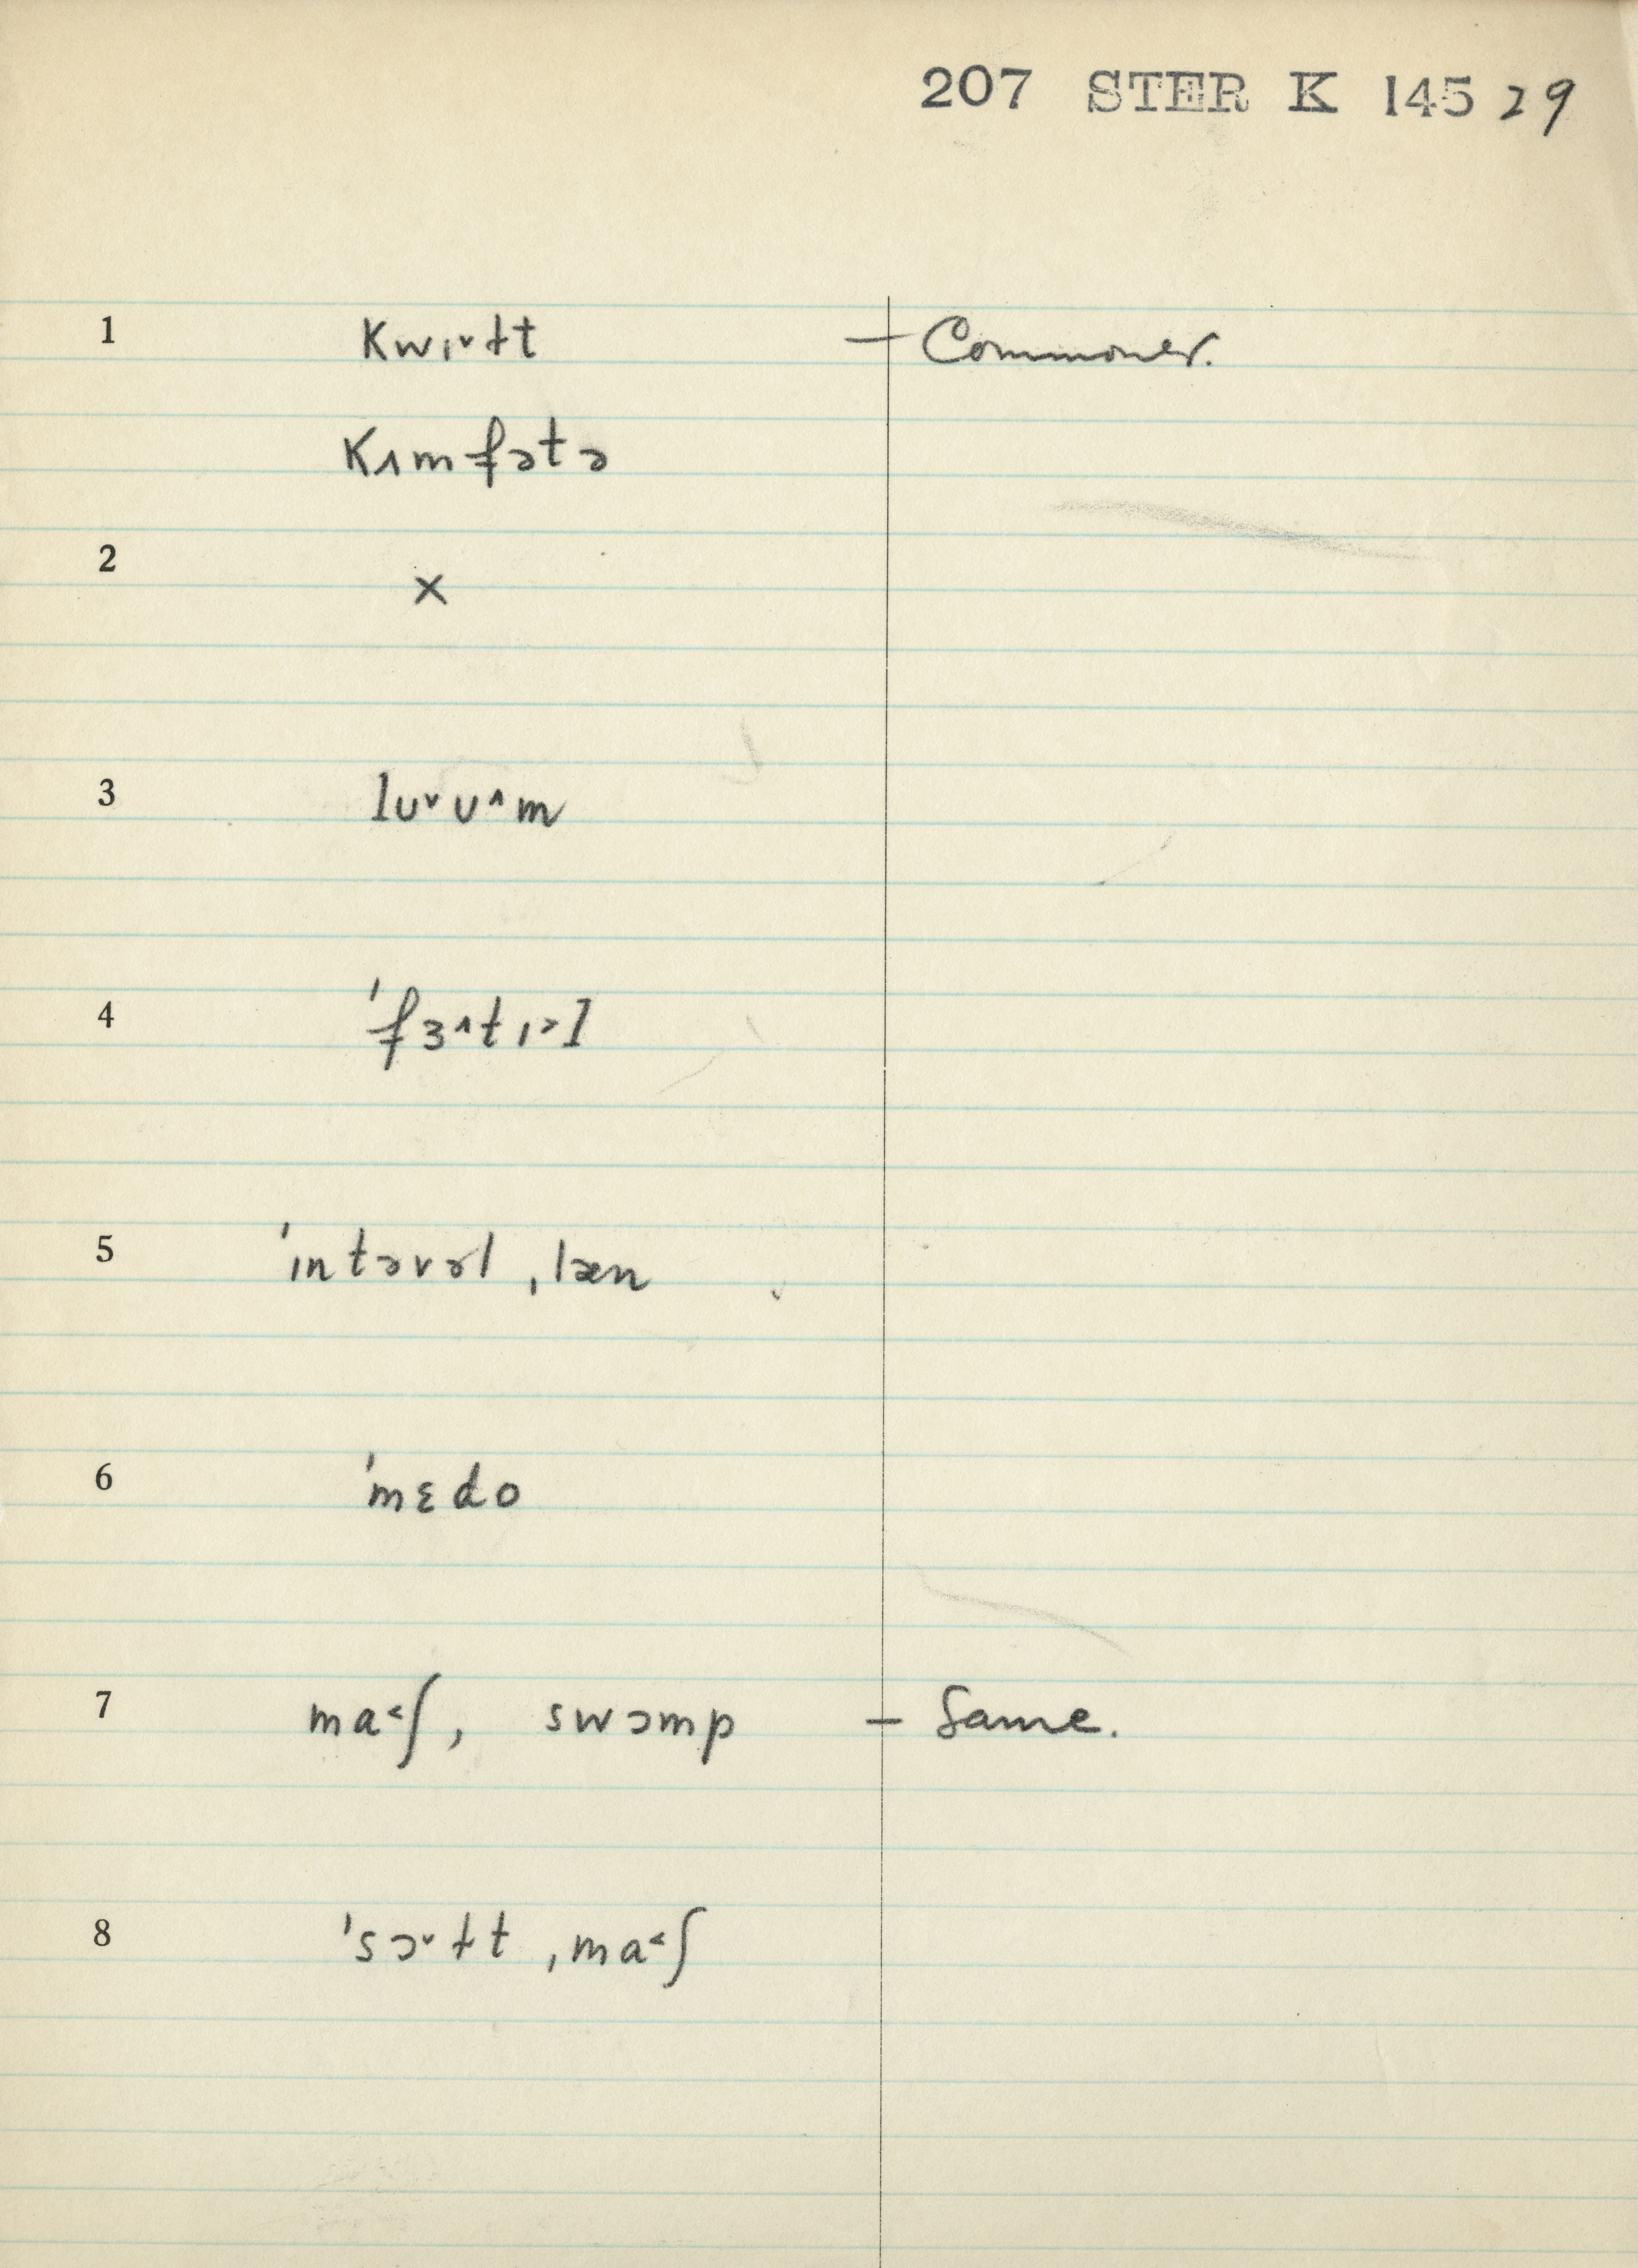 207 STER K 145 29
1 kwɪ˅ɫt — Commoner.
kʌmfətə
2 ×
3 lu˅u˄m
4 ˈfɜ˄tɪ˃l
5 ˈɪntəvəl ˌlæn
6 ˈmɛdo
7 ma˂ʃ, swɔmp — Same.
8 ˈsɔ˅ɫt ˌma˂ʃ